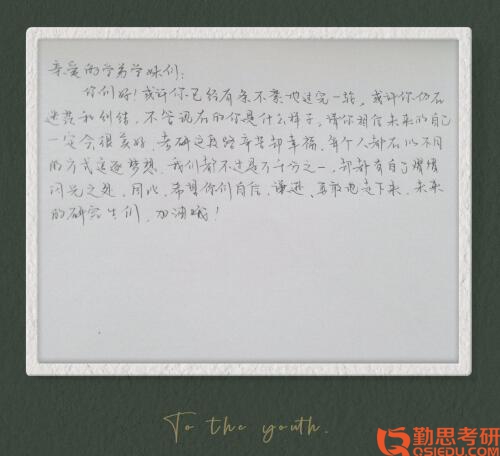 亲爱的学弟学妹们：
你们好！或许你已经有条不紊地过完一轮，或许你仍在
迷茫和纠结，不管现在的你是什么样子，请你相信未来的自己
一定会很美好。考研这段路辛苦却幸福，每个人都在以不同
的方式追逐梦想，我们都不过是万千分之一，却都有自己熠熠
闪光之处，因此，希望你们自信、谦逊、勇敢地走下来，未来
的研究生们，加油哦！
To the youth.
勤思考研
QSIEDU.COM